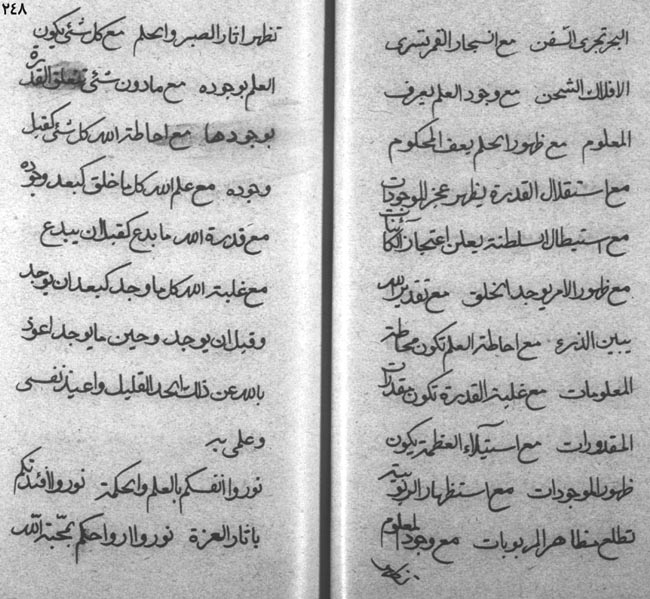 ٢٤٨
البحر تجری السفن مع انسجار القمر تسری
الافلاك الشحن مع وجود العلم يعرف
المعلوم مع ظهور الحلم يعف المحكوم
مع استقلال القدرة يظهر عجز الموجودات
مع استيطال السلطنة يعلن اعتجاز الكائنات
مع ظهور الامر يوجد الخلق مع تقدير الله
يبين الذرء مع احاطة العلم تكون محاطة
المعلومات مع غلبة القدرة تكون مقدرات
المقدورات مع استيلاء العظمة يكون
ظهور الموجودات مع استظهار الربوبية
تطلع مظاهر المربوبات مع وجود المعلوم
تظهر
تظهر اثار الصبر والحلم مع كل شئ يكون
العلم بوجوده مع مادون شئ تتعلق القدرة
بوجودها مع احاطة الله كل شئ كقبل
وجوده مع علم الله كل ما خلق كبعد وجوده
مع قدرة الله ما بدع كقبل ان يبدع
مع غلبة الله كل ما وجد كبعد ان يوجد
وقبل ان يوجد وحين ما يوجد اعوذ
بالله عن ذلك الحد القليل واعيذ نفسی
وعلمی به
نوروا انفسكم بالعلم والحكمة نوروا افئدتكم
باثار العزة نوروا ارواحكم بمحبة الله